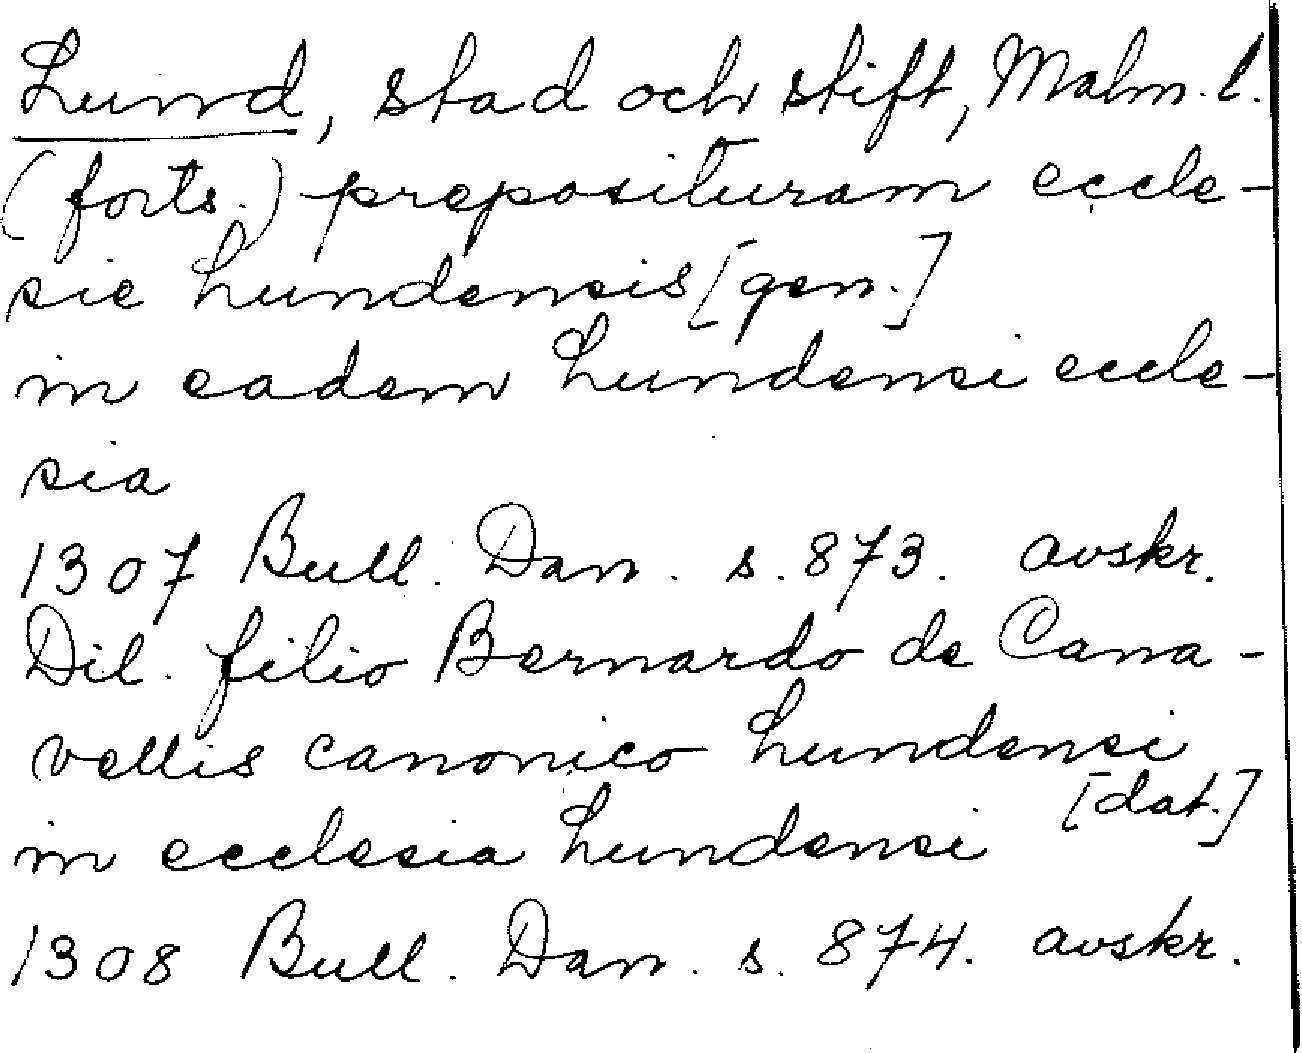 Lund, stad och stift, Malm. l.
(forts.) preposituram eccle-
sie Lundensis [gen.]
in eadem Lundensi eccle-
sia
1307 Bull. Dan. s. 873. avskr.
Dil. filio Bernardo de Cana-
vellis canonico Lundensi
[dat.]
in ecclesia Lundensi
1308 Bull. Dan. s. 874. avskr.